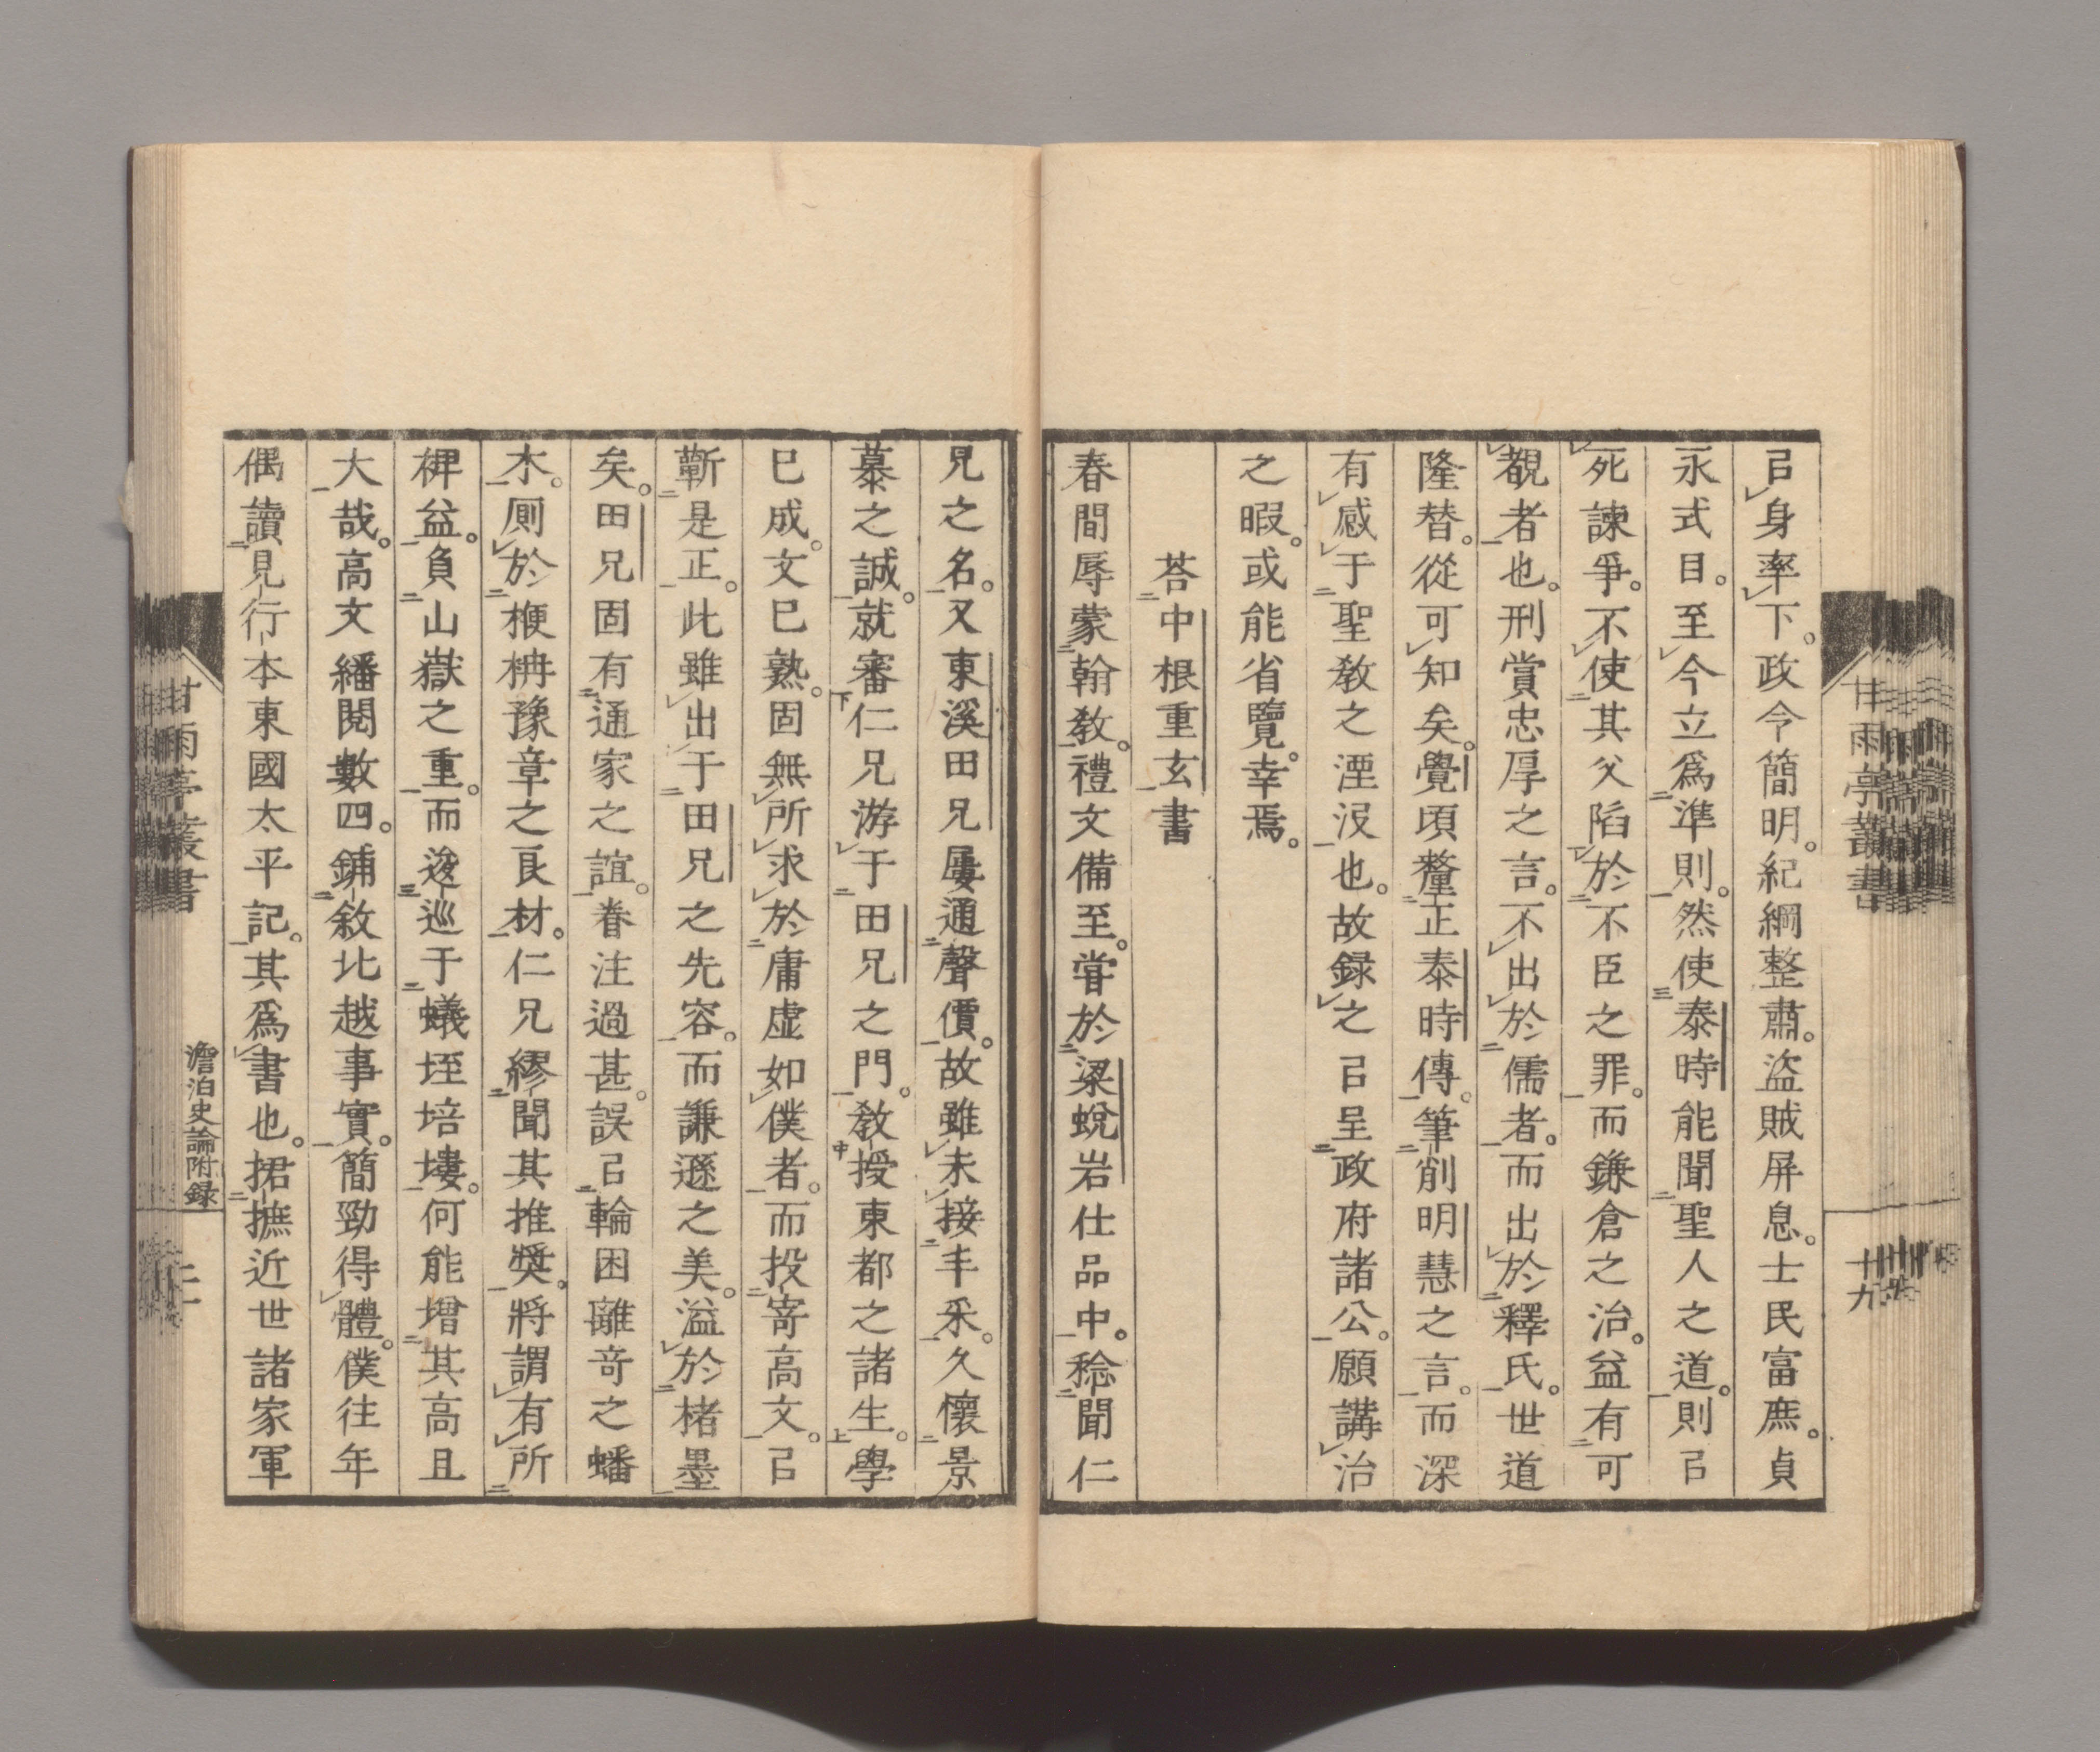 㠯身率下。政令簡明。紀綱整肅。盜賊屏息。士民富庶。貞
永式目。至今立爲準則。然使泰時能聞聖人之道。則㠯
死諫爭。不使其父陷於不臣之罪。而鎌倉之治。益有可
覩者也。刑賞忠厚之言。不出於儒者。而出於釋氏。世道
隆替。從可知矣。覺頃釐正泰時傳。筆削明慧之言。而深
有感于聖教之湮沒也。故録之㠯呈政府諸公。願講治
之暇。或能省覽。幸焉。
荅中根重玄書
春間辱蒙翰教。禮文備至。甞於梁蛻岩仕品中。稔聞仁
兄之名。又東溪田兄屢通聲價。故雖未接丰采。久懷景
慕之誠。就審仁兄游于田兄之門。教授東都之諸生。學
已成。文已熟。固無所求於庸虛如僕者。而投寄高文。㠯
蘄是正。此雖出于田兄之先容。而謙遜之美。溢於楮墨
矣。田兄固有通家之誼。眷注過甚。誤㠯輪囷離奇之蟠
木。厠於楩柟豫章之良材。仁兄繆聞其推奬。將謂有所
裨益。負山嶽之重。而逡巡于蟻垤培塿。何能增其高且
大哉。高文繙閱數四。鋪敘北越事實。簡勁得體。僕往年
偶讀見行本東國太平記。其爲書也。捃摭近世諸家軍
甘雨亭叢書
十九
甘雨亭叢書
澹泊史論附録